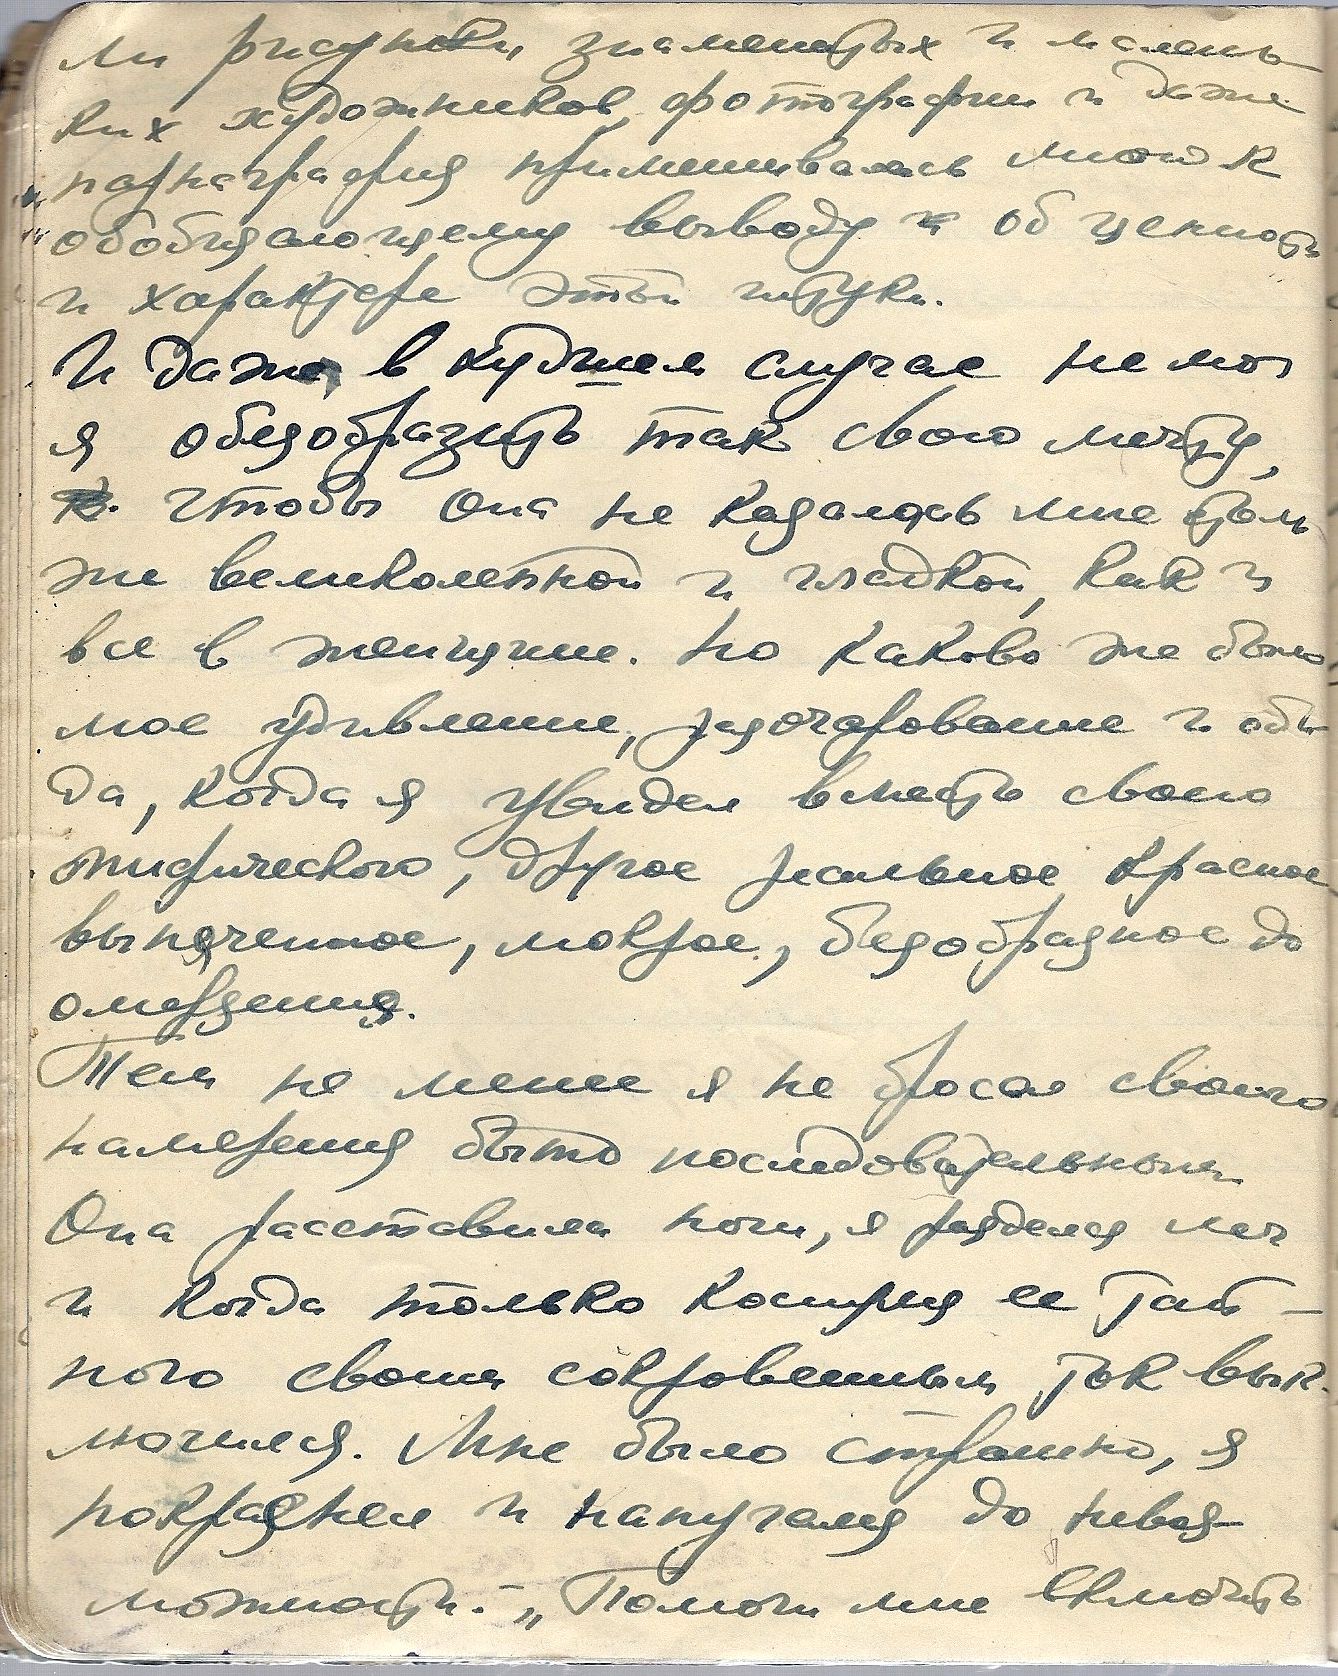 ли рисунки, знаменитых и малень-
ких художников, фотографии и даже
парнаграфия примешивалась мною к
обобщающему выводу и об ценности
и характере этой штуки.
И даже в худшем случае не мог
я обезобразить так свою мечту,
чтобы она не казалась мне столь
же великолепной и гладкой, как и
все в женщине. Но каково же было
мое удивление, разочарование и оби-
да, когда я увидел вместо своего
мифического, другое реальное красное
выпяченное, мокрое, безобразное до
омерзения.
Тем не менее я не бросал своего
намерения быть последовательным
Она расставила ноги, я разделся лег
и когда только коснулся ее тай-
ного своим сокровенным ток вык-
лючился. Мне было страшно, я
покраснел и напугался до невоз-
можности. - „Помоги мне включить